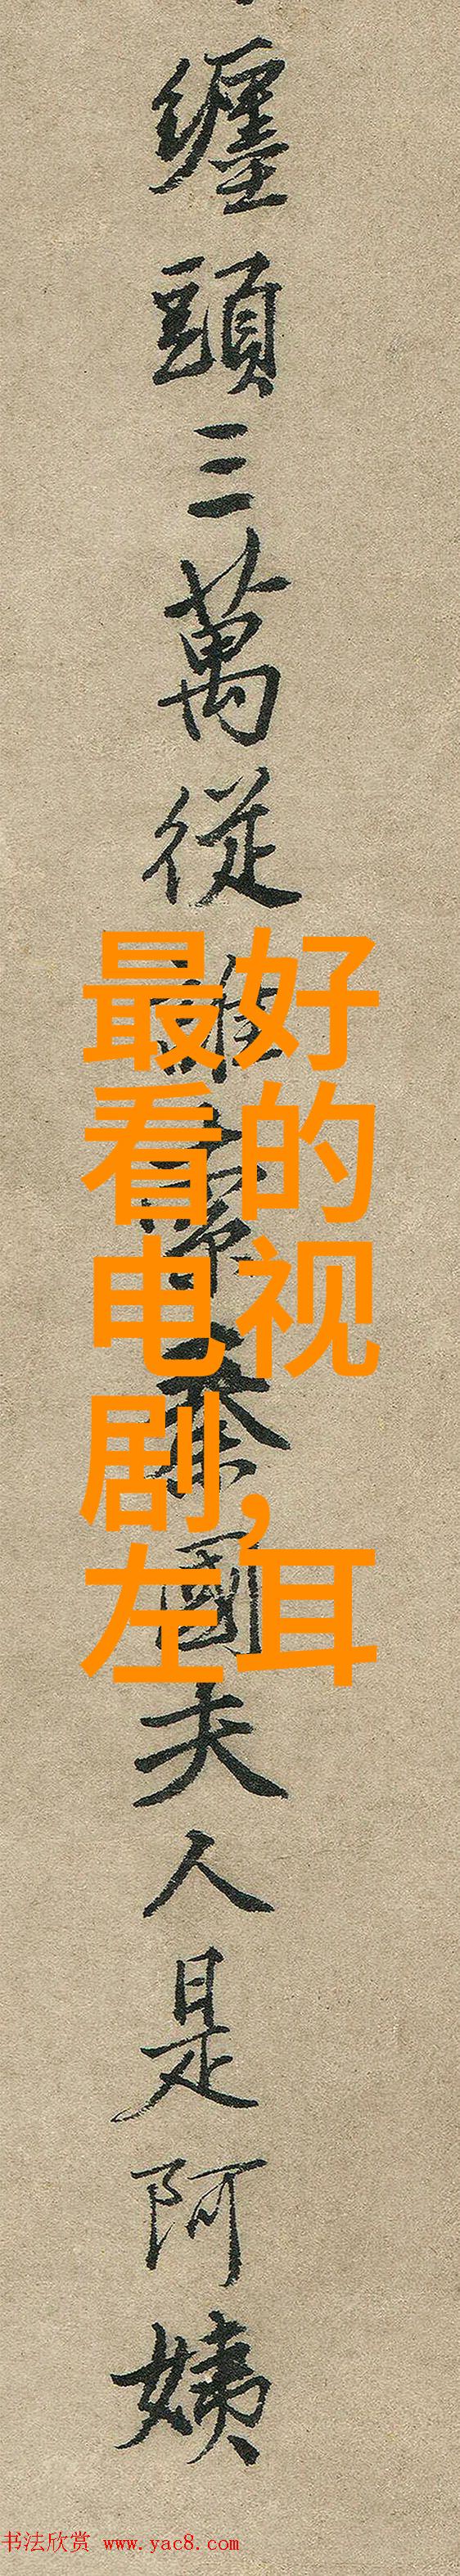 纏頭三萬從誰秦國夫人是阿姨
最好
看的
电视
剧,
左耳
书法欣赏 www.yac8.com